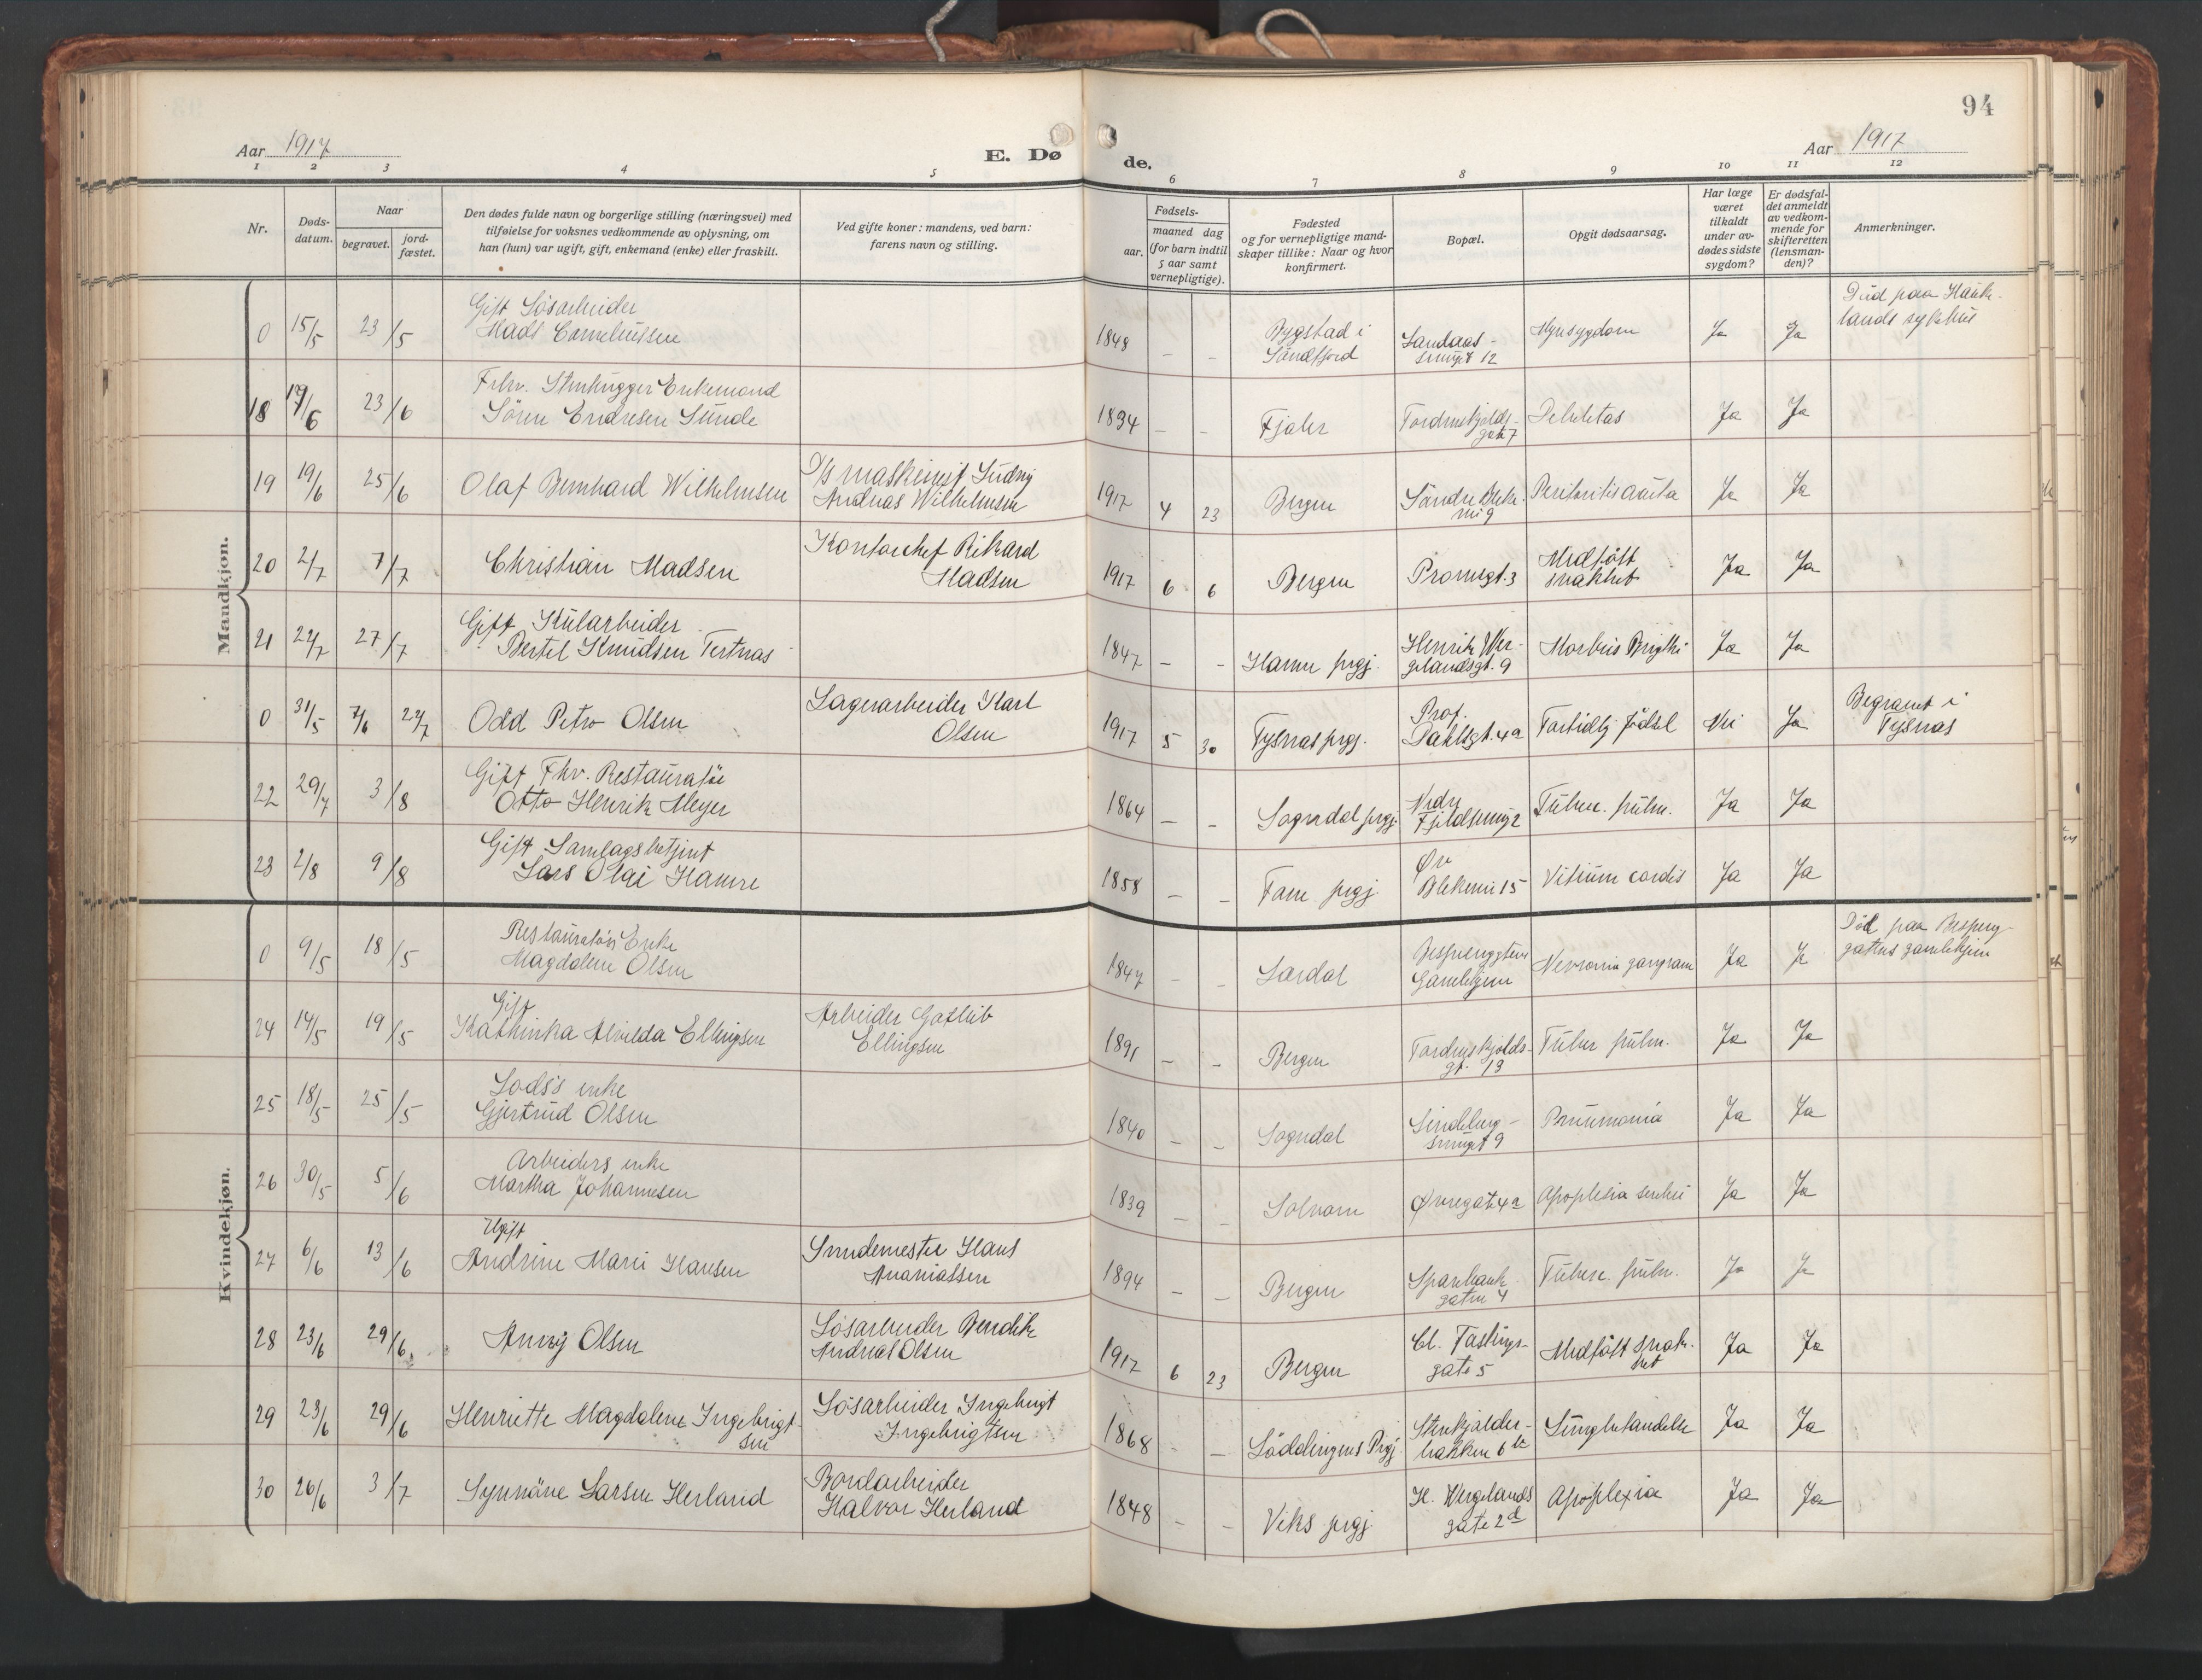 94
Aar 1917
E. Dø
de.
Aar 1917
1 2 3 4 5 6 7 8 9 10 11 12
Nr.
Døds-
datum.
Naar
begravet.
jord-
fæstet.
Den dødes fulde navn og borgerlige stilling (næringsvei) med
tilføielse for voksnes vedkommende av oplysning, om
han (hun) var ugift, gift, enkemand (enke) eller fraskilt.
Ved gifte koner: mandens, ved barn:
farens navn og stilling.
Fødsels-
aar.
maaned dag
(for barn indtil
5 aar samt
vernepligtige).
Fødested
og for vernepligtige mand-
skaper tillike: Naar og hvor
konfirmert.
Bopæl.
Opgit dødsaarsag.
Har læge
været
tilkaldt
under av-
dødes sidste
sygdom?
Er dødsfal-
det anmeldt
av vedkom-
mende for
skifteretten
(lensman-
den)?
Anmerkninger.
Maandkjøn.
0 15/5 23/5
Gift Løsarbeider
Mads Corneliussen
1848 - -
Bygstad i
Søndfjord
Landaas-
smuget 12
Ja Ja
Død paa Hauke-
lands sykehus
18 17/6 23/6
Fhv. Stenhugger Enkemand
Sören Endresen Sunde
1834 - -
Fjaler
Tordenskjolds-
gate 7
Debilitas
Ja Ja
19 19/6 25/6
Olaf Bernhard Wilhelmsen
D/s maskinist Ludvig
Andreas Wilhelmsen
1917 4 23
Bergen
Söndre Bleke-
vei 9
Peritonitis acuta
Ja Ja
20 2/7 7/7
Christian Madsen
Kontorchef Rikard
Madsen
1917 6 6
Bergen
Promsgt. 3
Medfött
svakhet
Ja Ja
21 22/7 27/7
Gift Kularbeider
Bertel Knudsen Tertnæs
1847 - -
Hamre prgj.
Henrik Wer-
gelandsgt. 9
Morbus Brigthi
Ja Ja
0 31/5 7/6 22/7
Odd Petro Olsen
Lagerarbeider Karl
Olsen
1917 5 30
Tysnæs prgj.
Prof.
Dahlsgt. 4a
Fortidlig födsel
Nei Ja
Begravet i
Tysnæs
22 29/7 3/8
Gift Fhv. Restauratör
Otto Henrik Meyer
1864 - -
Sogndal prgj.
Nedre
Fjeldsmug 2
Tuberc. pulm.
Ja Ja
23 2/8 9/8
Gift Samlagsbetjent
Lars Olai Hamre
1858 - -
Fane prgj.
Øv
Blekevei 15
Vitium cordis
Ja Ja
Kvindekjøn.
0 9/5 18/5
Restauratörs Enke
Magdalene Olsen
1847 - -
Lærdal
Gamlehjem
Ja Ja
Död paa
gatens gamlehjem
24 14/5 19/5
Gift
Kathinka Alvilda Ellingsen
Arbeider Gotlib
Ellingsen
1891 - -
Bergen
Tordenskjolds-
gt. 13
Tuberc pulm.
Ja Ja
25 18/5 25/5
Lods's enke
Gjertrud Olsen
1840 - -
Sogndal
smuget 9
Pneumonia
Ja Ja
26 30/5 5/6
Arbeiders enke
Martha Johannesen
1839 - -
Solvorn
Øvregate 4a
Apoplexia
Ja Ja
27 6/6 13/6
Ugift
Andrine Marie Hansen
Smedemester Hans
Ananiassen
1894 - -
Bergen
Sparebank
gaten 4
Tuberc. pulm.
Ja Ja
28 23/6 29/6
Anvy Olsen
Løsarbeider Bendik
Andreas Olsen
1917 6 23
Bergen
Cl. Fastings-
gate 5
Medfött svak-
het
Ja Ja
29 23/6 29/6
Henriette Magdalene Ingebrigt-
sen
Løsarbeider Ingebrigt
Ingebrigtsen
1868 - -
Löddingens Prgj.
Stenkjelder-
bakken 6b
Lungbetændelse
Ja Ja
30 26/6 3/7
Synnöve Larsen Herland
Bordarbeider
Halvor Herland
1848 - -
Viks prgj
H. Wergelands
gate 2d
Apoplexia
Ja Ja